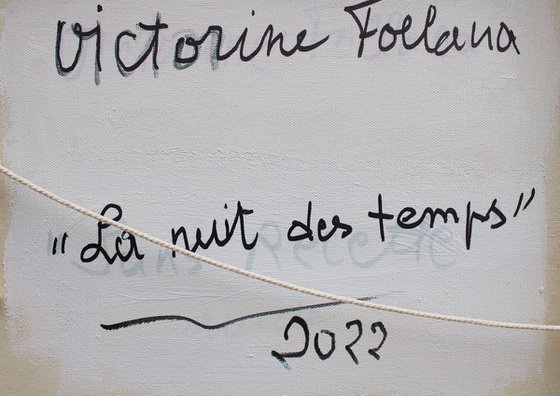 Victorine Follana
"La nuit des temps"
2022